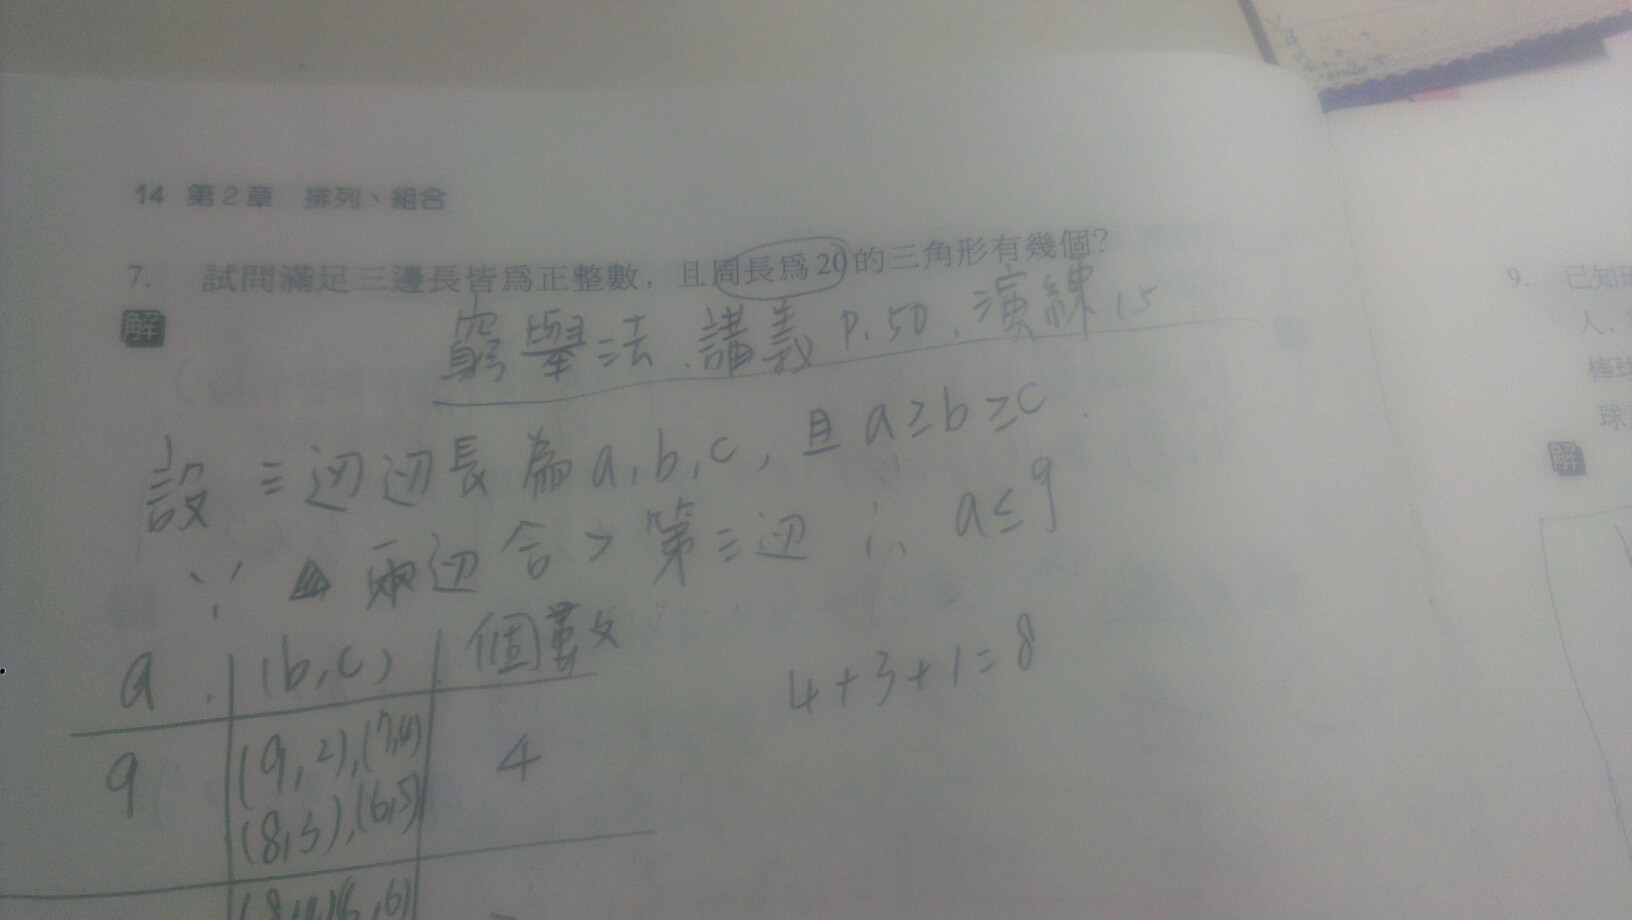 14 第2章 排列、組合
7. 試問滿足三邊長皆為正整數，且周長為20的三角形有幾個？
解
窮舉法.講義P.50.演練15
設三边边長為a,b,c,且a≥b≥c
∵△兩边合>第三边 ∴ a≤9
a (b,c) 個數
9 (9,2),(7,4) 4
(8,3),(6,5)
4+3+1=8
9. 已知
人，
棒球
球
解